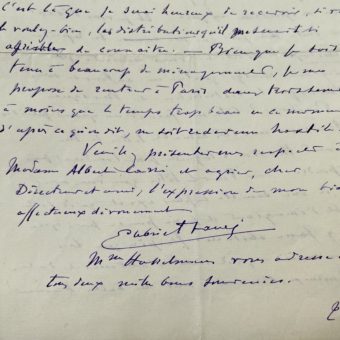 C'est là que je serai heureux de recevoir, si vous
le voulez bien, les distributions qu'il me serait si
agréable de connaître. — Bien que je sois
tenu à beaucoup de ménagements, je me
propose de rentrer à Paris dans trois semaines
à moins que le temps trop beau en ce moment
d'après ce qu'on dit, ne soit redevenu hostile.
Veuillez présenter mes respects à
Madame Albert Carré et agréer, cher
Directeur et ami, l'expression de mon bien
affectueux dévouement
Gabriel Fauré
Mme Hasselmans vous adresse à
tous deux ses bons souvenirs.